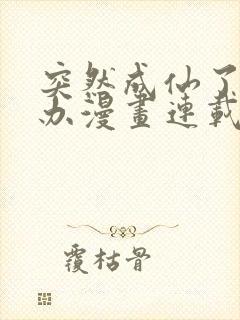 突然成仙了
办漫畫連載
覆枯骨